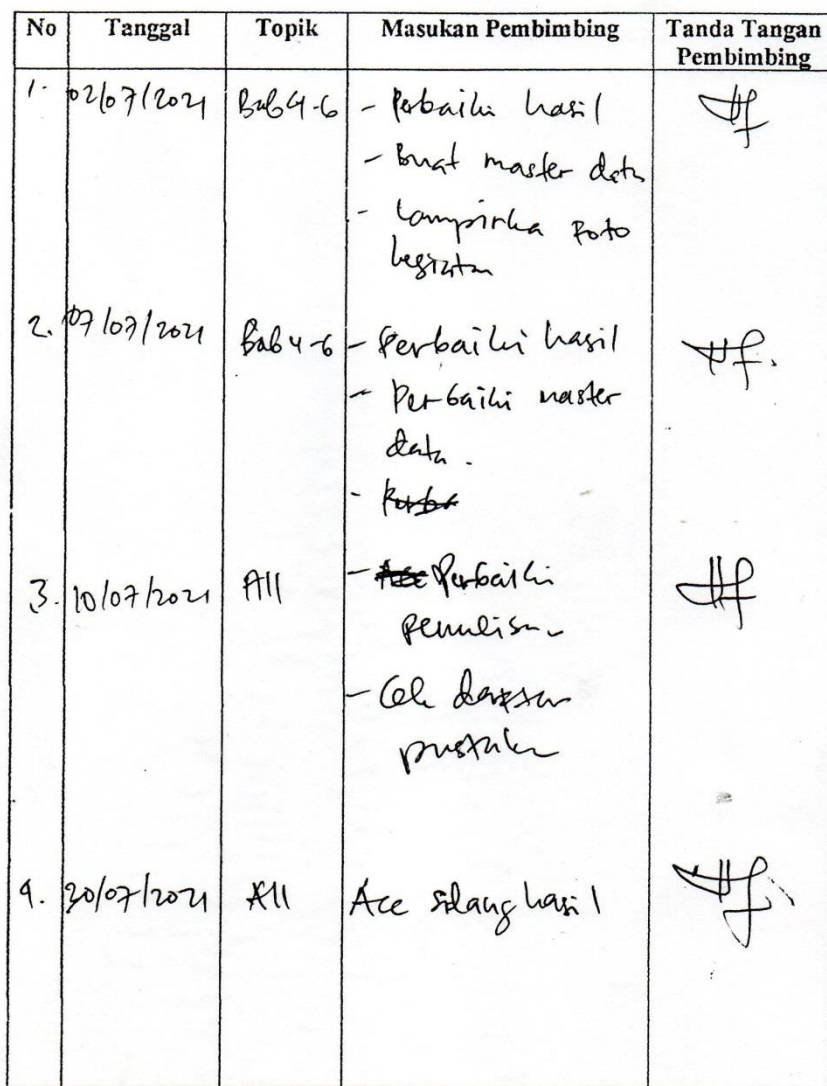 No Tanggal Topik Masukan Pembimbing Tanda Tangan Pembimbing
1. 02/07/2021 Bab 4-6 - Perbaiki hasil
- Buat master data
- Lampirka Foto
kegiatan
2. 07/07/2021 Bab 4-6 - Perbaiki hasil
- Perbaiki master
data.
-
3. 10/07/2021 All - Perbaiki
penulisan
- Cek daftar
pustaka
4. 30/07/2021 All Acc sidang hasil